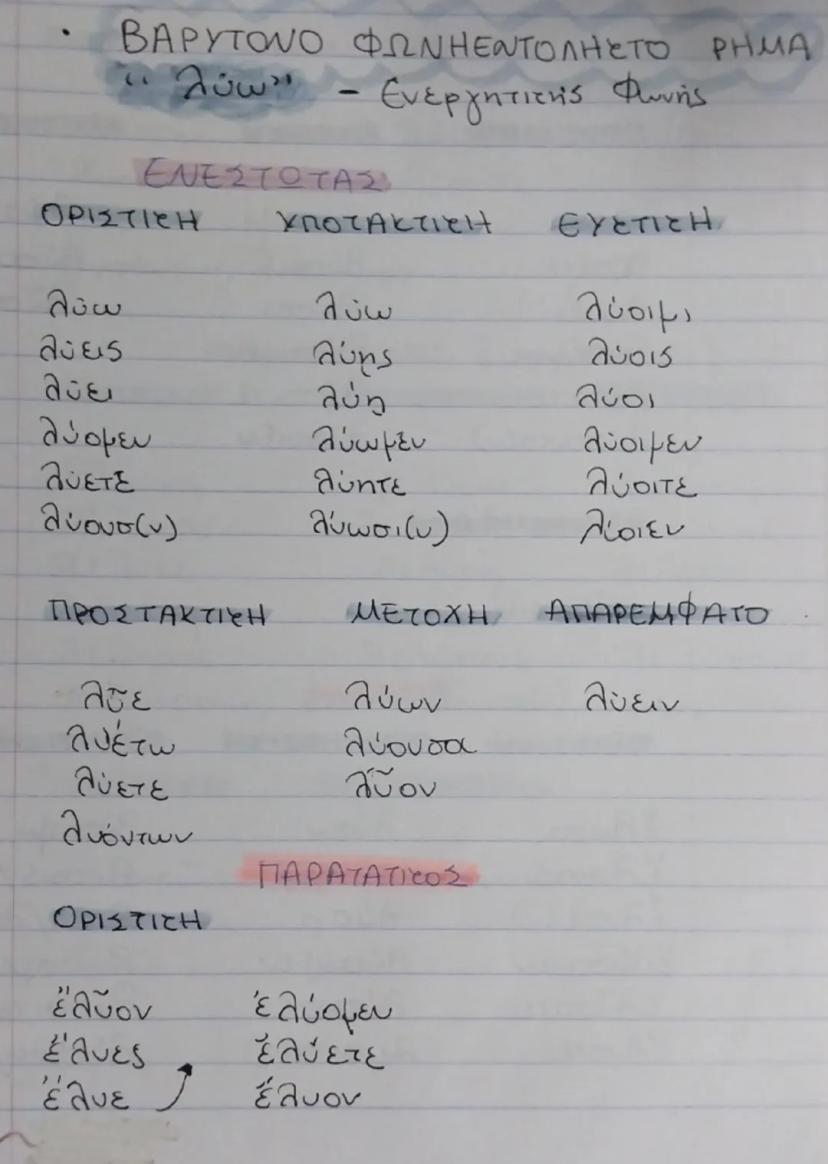 · ΒΑΡΥΤΟΝΟ ΦΩΝΗΕΝΤΟΛΗΚΤΟ ΡΗΜΑ
"λύω" - Ενεργητικής Φωνής
ΕΝΕΣΤΩΤΑΣ
ΟΡΙΣΤΙΚΗ ΥΠΟΤΑΚΤΙΚΗ ΕΥΚΤΙΚΗ
λύω λύω λύοιμι
λύεις λύῃς λύοις
λύει λύῃ λύοι
λύομεν λύωμεν λύοιμεν
λύετε λύητε λύοιτε
λύουσ(ν) λύωσι(ν) λύοιεν
ΠΡΟΣΤΑΚΤΙΚΗ ΜΕΤΟΧΗ ΑΠΑΡΕΜΦΑΤΟ
λῦε λύων λύειν
λυέτω λύουσα
λύετε λῦον
λυόντων
ΠΑΡΑΤΑΤΙΚΟΣ
ΟΡΙΣΤΙΚΗ
ἔλῦον ἐλύομεν
ἔλυες ἐλύετε
ἔλυε ἔλυον